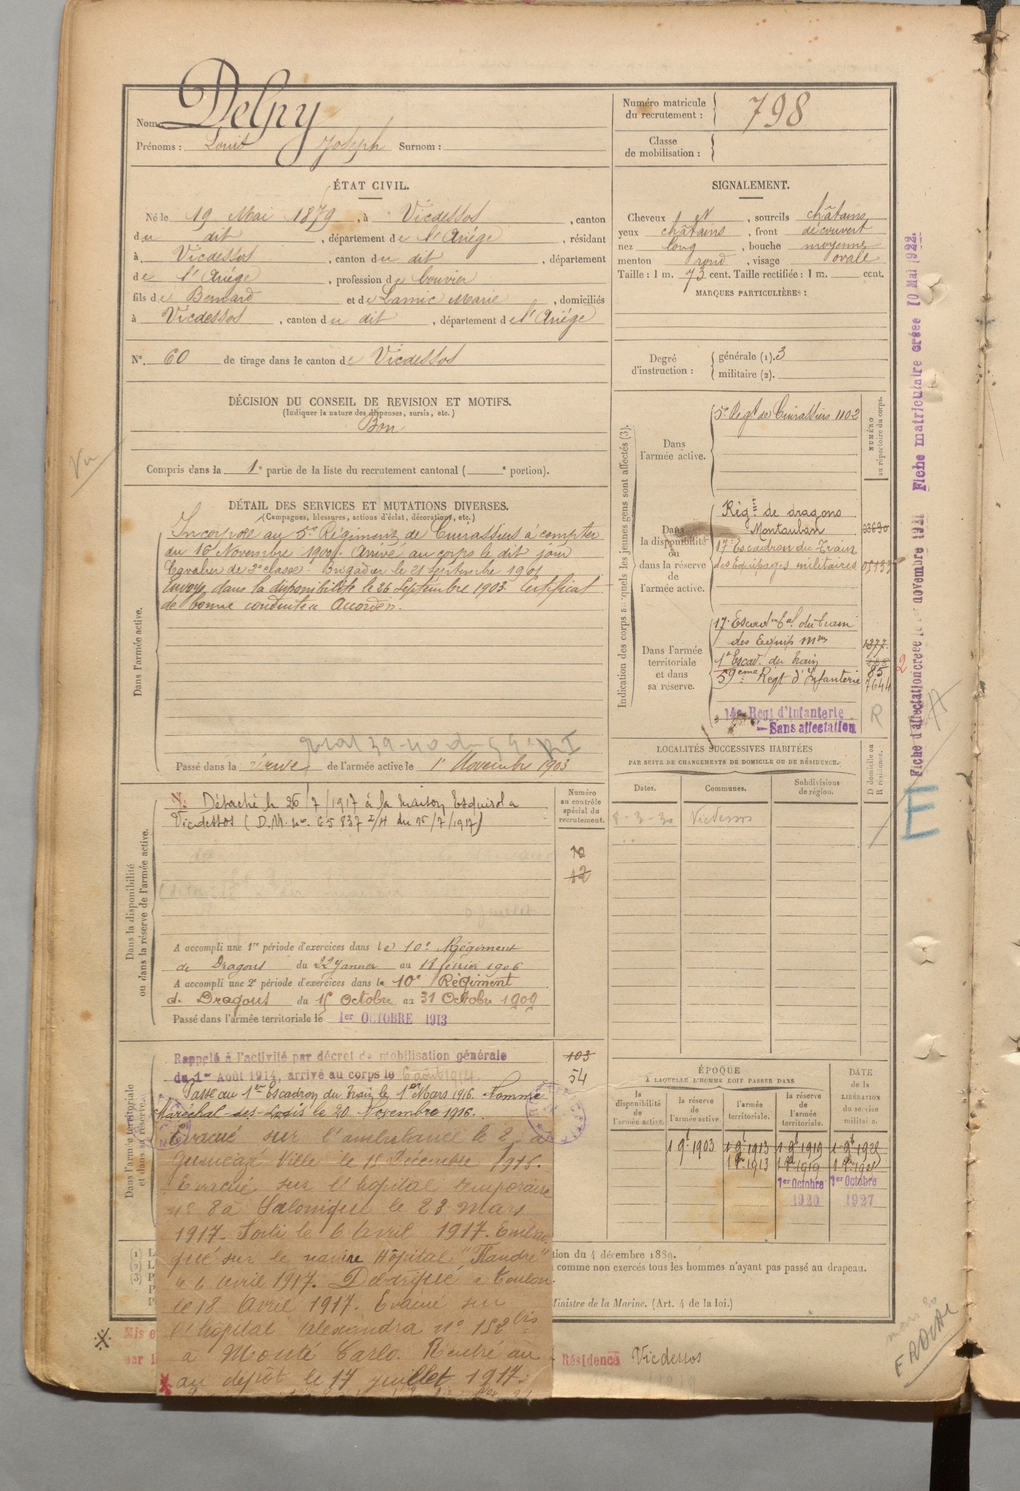 Nom : Delpy
Prénoms : Louis Joseph Surnom :
Numéro matricule du recrutement : 798
Classe de mobilisation :
ÉTAT CIVIL.
Né le 19 Mai 1879, à Vicdessos, canton
du dit, département de l'Ariége, résidant
à Vicdessos, canton du dit, département
de l'Ariége, profession de bouvier
fils de Bernard et de Lamic Marie, domiciliés
à Vicdessos, canton du dit, département de l'Ariége
N° 60 de tirage dans le canton de Vicdessos
SIGNALEMENT.
Cheveux et, sourcils châtains
yeux châtains, front découvert
nez long, bouche moyenne
menton rond, visage ovale
Taille : 1 m. 73 cent. Taille rectifiée : 1 m. cent.
MARQUES PARTICULIÈRES :
Degré d'instruction : générale (1). 3
militaire (2).
DÉCISION DU CONSEIL DE REVISION ET MOTIFS.
(Indiquer la nature des dispenses, sursis, etc.)
Bon
Compris dans la 1e partie de la liste du recrutement cantonal ( e portion).
Vu
DÉTAIL DES SERVICES ET MUTATIONS DIVERSES.
(Campagnes, blessures, actions d'éclat, décorations, etc.)
Dans l'armée active.
Incorporé au 5e Régiment de Cuirassiers à compter
du 16 Novembre 1900. Arrivé au corps le dit jour
Cavalier de 2e classe. Brigadier le 21 septembre 1901
Envoyé dans la disponibilité le 26 septembre 1903 Certificat
de bonne conduite "Accordé".
Passé dans la réserve de l'armée active le 1er Novembre 1903
Indication des corps auxquels les jeunes gens sont affectés (3).
NUMÉRO au répertoire du corps.
Dans l'armée active.
5e Regt de Cuirassiers 1102
Dans la disponibilité ou dans la réserve de l'armée active.
Régt de dragons
Montauban
17e Escadron du Train
des Équipages militaires
Dans l'armée territoriale et dans sa réserve.
17e Escadon tal du train
des Equip mres 1377
1er Escad. du train 85
59eme Régt d'Infanterie 7644
14e Regt d'Infanterie R
Sans affectation
Dans la disponibilité ou dans la réserve de l'armée active.
Numéro au contrôle spécial du recrutement.
Détaché le 26/7/1917 à la maison Esquirol a
Vicdessos (D.M. no 65837 I/H du 15/7/1917)
12
A accompli une 1re période d'exercices dans le 10e Régiment
de Dragons du 22 Janvier au 18 février 1906
A accompli une 2e période d'exercices dans le 10e Régiment
de Dragons du 15 Octobre au 31 Octobre 1909
Passé dans l'armée territoriale le 1er OCTOBRE 1913
LOCALITÉS SUCCESSIVES HABITÉES
PAR SUITE DE CHANGEMENTS DE DOMICILE OU DE RÉSIDENCE.
Dates. Communes. Subdivisions de région. D domicile ou R résidence.
8-3-30 Vicdessos
Dans l'armée territoriale et dans sa réserve.
Rappelé à l'activité par décret de mobilisation générale 103
du 1er Août 1914, arrivé au corps le 6 août 1914 54
Passé au 1er Escadron du train le 1er Mars 1916. Nommé
Maréchal des Logis le 20 Novembre 1916.
Evacué sur l'ambulance le 2 de
ville le 15 Décembre 1916.
Evacué sur l'hopital temporaire
n° 8 à Salonique le 23 mars
1917. Sorti le 6 avril 1917. Embar
qué sur le navire Hôpital "Flandre"
le 6 avril 1917. Débarqué à Toulon
le 18 Avril 1917. Evacué sur
l'hôpital Alexandra n° 152 bis
à Monté Carlo. Rentré au
au dépôt le 17 juillet 1917.
ÉPOQUE
A LAQUELLE L'HOMME DOIT PASSER DANS
la disponibilité de l'armée active. la réserve de l'armée active l'armée territoriale. la réserve de l'armée territoriale.
DATE de la LIBÉRATION du service militaire.
1 9t 1903 1 9t 1913 1 9t 1919
1 9t 1913 1 9t 1919
1er Octobre 1er Octobre
1920 1927
tion du 4 décembre 1889.
comme non exercés tous les hommes n'ayant pas passé au drapeau.
Ministre de la Marine. (Art. 4 de la loi.)
Résidence Vicdessos
Fiche matriculaire créée 10 Mai 1922.
novembre 1921
E